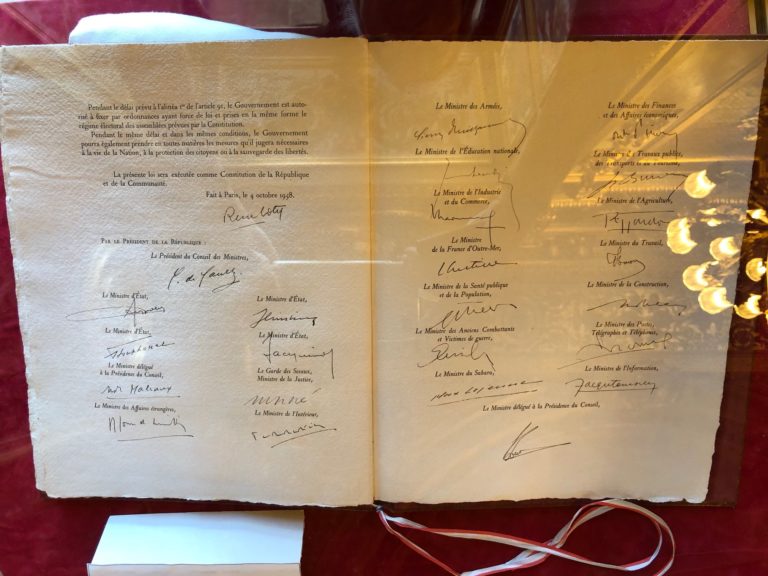 Pendant le délai prévu à l'alinéa 1er de l'article 91, le Gouvernement est auto-
risé à fixer par ordonnances ayant force de loi et prises en la même forme le
régime électoral des assemblées prévues par la Constitution.
Pendant le même délai et dans les mêmes conditions, le Gouvernement
pourra également prendre en toutes matières les mesures qu'il jugera nécessaires
à la vie de la Nation, à la protection des citoyens ou à la sauvegarde des libertés.
La présente loi sera exécutée comme Constitution de la République
et de la Communauté.
Fait à Paris, le 4 octobre 1958.
René Coty
PAR LE PRÉSIDENT DE LA RÉPUBLIQUE :
Le Président du Conseil des Ministres,
C. de Gaulle
Le Ministre d'État,
Le Ministre d'État,
Le Ministre d'État,
Le Ministre d'État,
Jacquinot
Le Ministre délégué
à la Présidence du Conseil,
André Malraux
Le Garde des Sceaux,
Ministre de la Justice,
Le Ministre des Affaires étrangères,
Le Ministre de l'Intérieur,
Le Ministre des Armées,
Le Ministre des Finances
et des Affaires économiques,
Le Ministre de l'Éducation nationale,
Le Ministre des Travaux publics,
des Transports et du Tourisme,
Le Ministre de l'Industrie
et du Commerce,
Le Ministre de l'Agriculture,
Le Ministre
de la France d'Outre-Mer,
Le Ministre du Travail,
Le Ministre de la Santé publique
et de la Population,
Le Ministre de la Construction,
Le Ministre des Anciens Combattants
et Victimes de guerre,
Le Ministre des Postes,
Télégraphes et Téléphones,
Le Ministre du Sahara,
Le Ministre de l'Information,
Le Ministre délégué à la Présidence du Conseil,